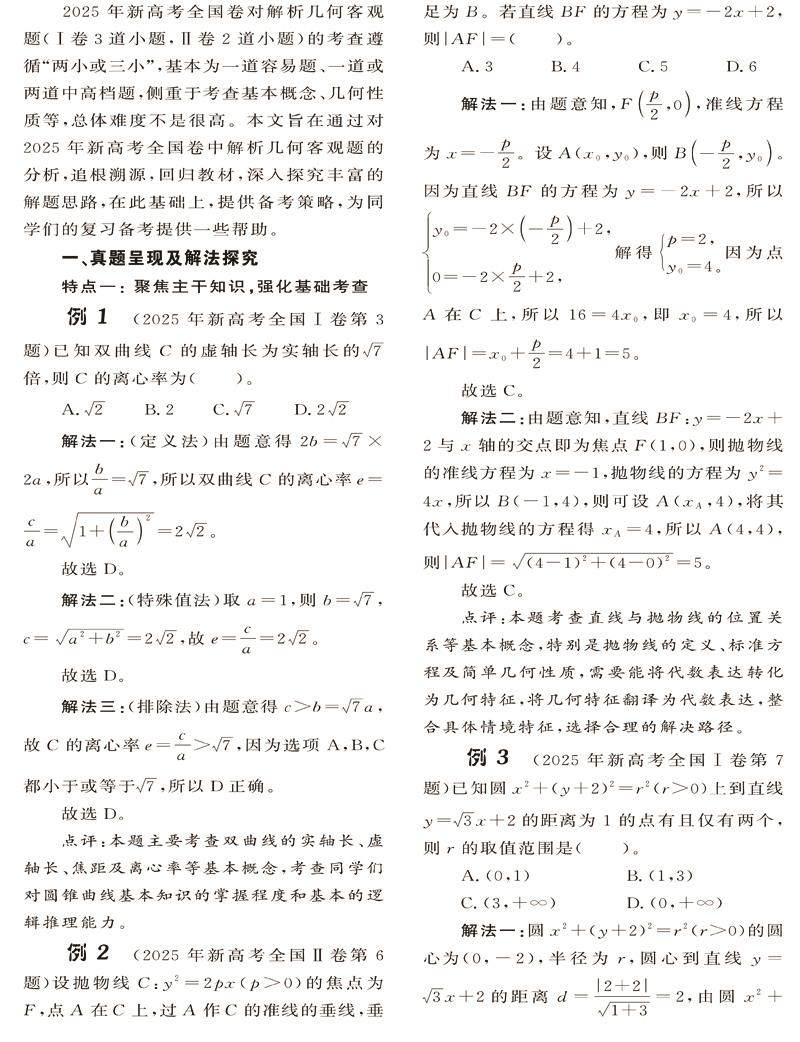 2025 年新高考全国卷对解析几何客观
题(Ⅰ卷 3 道小题,Ⅱ卷 2 道小题)的考查遵
循“两小或三小”,基本为一道容易题、一道或
两道中高档题,侧重于考查基本概念、几何性
质等,总体难度不是很高。本文旨在通过对
2025 年新高考全国卷中解析几何客观题的
分析,追根溯源,回归教材,深入探究丰富的
解题思路,在此基础上,提供备考策略,为同
学们的复习备考提供一些帮助。
一、真题呈现及解法探究
特点一:聚焦主干知识,强化基础考查
例 1 (2025 年新高考全国Ⅰ卷第 3
题)已知双曲线 C 的虚轴长为实轴长的√7
倍,则 C 的离心率为(　　)。
A. √2　B. 2　C. √7　D. 2√2
解法一:(定义法)由题意得 2b=√7×
2a,所以 b/a=√7,所以双曲线 C 的离心率 e=
c/a=√(1+(b/a)²)=2√2。
故选 D。
解法二:(特殊值法)取 a=1,则 b=√7,
c=√(a²+b²)=2√2,故 e=c/a=2√2。
故选 D。
解法三:(排除法)由题意得 c>b=√7a,
故 C 的离心率 e=c/a>√7,因为选项 A,B,C
都小于或等于√7,所以 D 正确。
故选 D。
点评:本题主要考查双曲线的实轴长、虚
轴长、焦距及离心率等基本概念,考查同学们
对圆锥曲线基本知识的掌握程度和基本的逻
辑推理能力。
例 2 (2025 年新高考全国Ⅱ卷第 6
题)设抛物线 C:y²=2px(p>0)的焦点为
F,点 A 在 C 上,过 A 作 C 的准线的垂线,垂
足为 B。若直线 BF 的方程为 y=-2x+2,
则|AF|=(　　)。
A. 3　B. 4　C. 5　D. 6
解法一:由题意知,F(p/2,0),准线方程
为 x=-p/2。设 A(x₀,y₀),则 B(-p/2,y₀)。
因为直线 BF 的方程为 y=-2x+2,所以
{y₀=-2×(-p/2)+2, 0=-2×p/2+2, 解得 {p=2, y₀=4。 因为点
A 在 C 上,所以 16=4x₀,即 x₀=4,所以
|AF|=x₀+p/2=4+1=5。
故选 C。
解法二:由题意知,直线 BF:y=-2x+
2 与 x 轴的交点即为焦点 F(1,0),则抛物线
的准线方程为 x=-1,抛物线的方程为 y²=
4x,所以 B(-1,4),则可设 A(x_A,4),将其
代入抛物线的方程得 x_A=4,所以 A(4,4),
则|AF|=√((4-1)²+(4-0)²)=5。
故选 C。
点评:本题考查直线与抛物线的位置关
系等基本概念,特别是抛物线的定义、标准方
程及简单几何性质,需要能将代数表达转化
为几何特征,将几何特征翻译为代数表达,整
合具体情境特征,选择合理的解决路径。
例 3 (2025 年新高考全国Ⅰ卷第 7
题)已知圆 x²+(y+2)²=r²(r>0)上到直线
y=√3x+2 的距离为 1 的点有且仅有两个,
则 r 的取值范围是(　　)。
A. (0,1)　B. (1,3)
C. (3,+∞)　D. (0,+∞)
解法一:圆 x²+(y+2)²=r²(r>0)的圆
心为(0,-2),半径为 r,圆心到直线 y=
√3x+2 的距离 d=|2+2|/√(1+3)=2,由圆 x²+